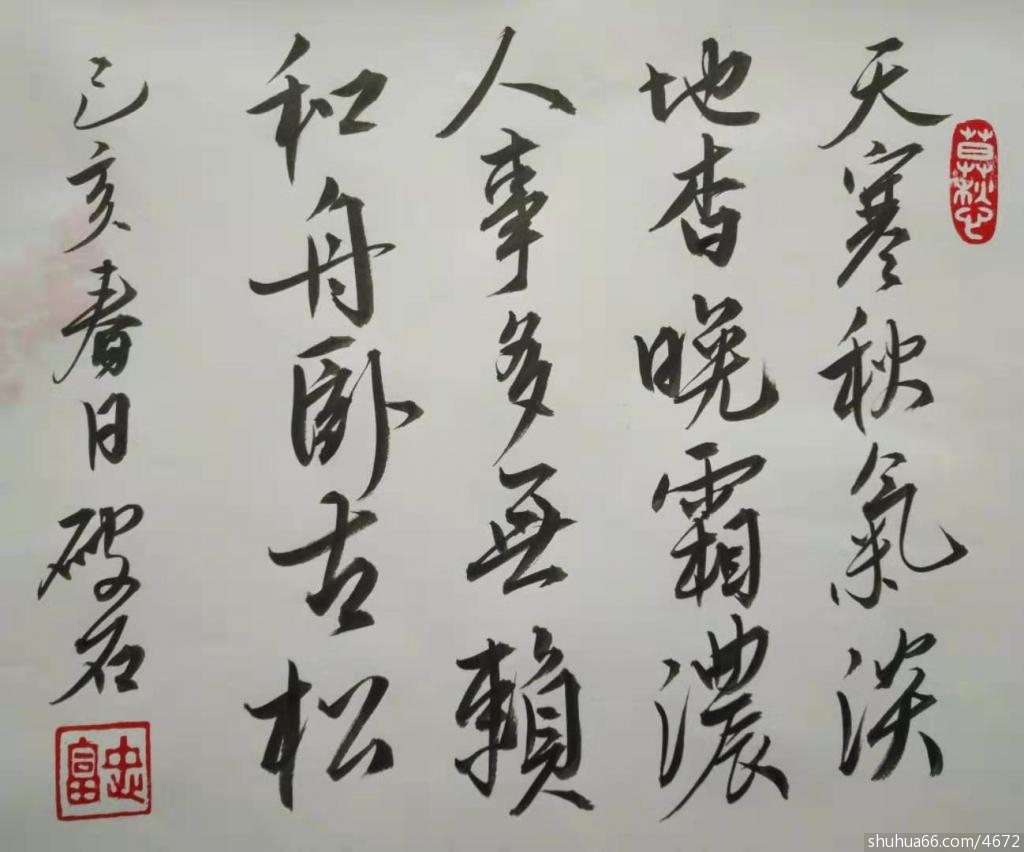 天寒秋氣淡
地杳晚霜濃
人事多無賴
和舟卧古松
己亥春日破石
忠富
shuhua66.com/4672